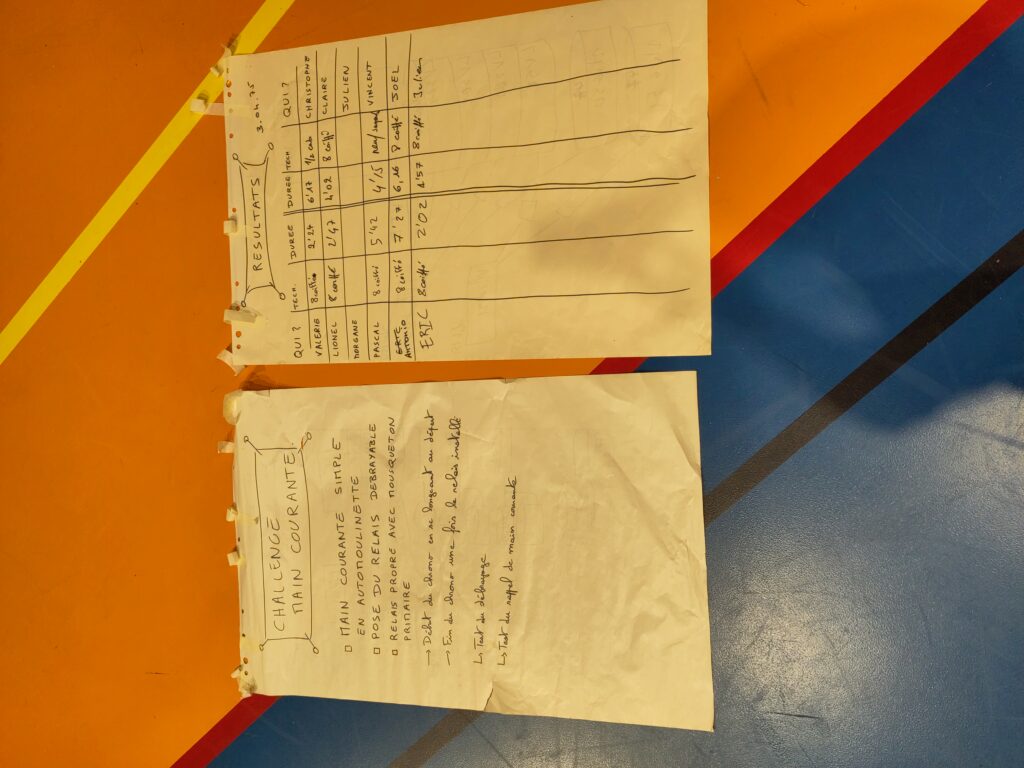 CHALLENGE
MAIN COURANTE
□ MAIN COURANTE SIMPLE
EN AUTOMOULINETTE
□ POSE DU RELAIS DEBRAYABLE
□ RELAIS PROPRE AVEC MOUSQUETON
PRIMAIRE
→ Début du chrono en se longeant au départ
→ Fin du chrono une fois le relais installé
↳ Test du débrayage
↳ Test du rappel de main courante
RESULTATS
QUI ? TECH. DUREE DUREE TECH QUI ?
VALERIE 8 coiffé 2'24 6'17 1/2 cab CHRISTOPHE
LIONEL 8 coiffé 2'47 4'02 8 coiffé CLAIRE
MORGANE JULIEN
PASCAL 8 coiffé 5'42 4'15 VINCENT
ANTONIO 8 coiffé 7'27 6,16 8 coiffé JOEL
ERIC 8 coiffé 2'02 4'57 8 coiffé Julien